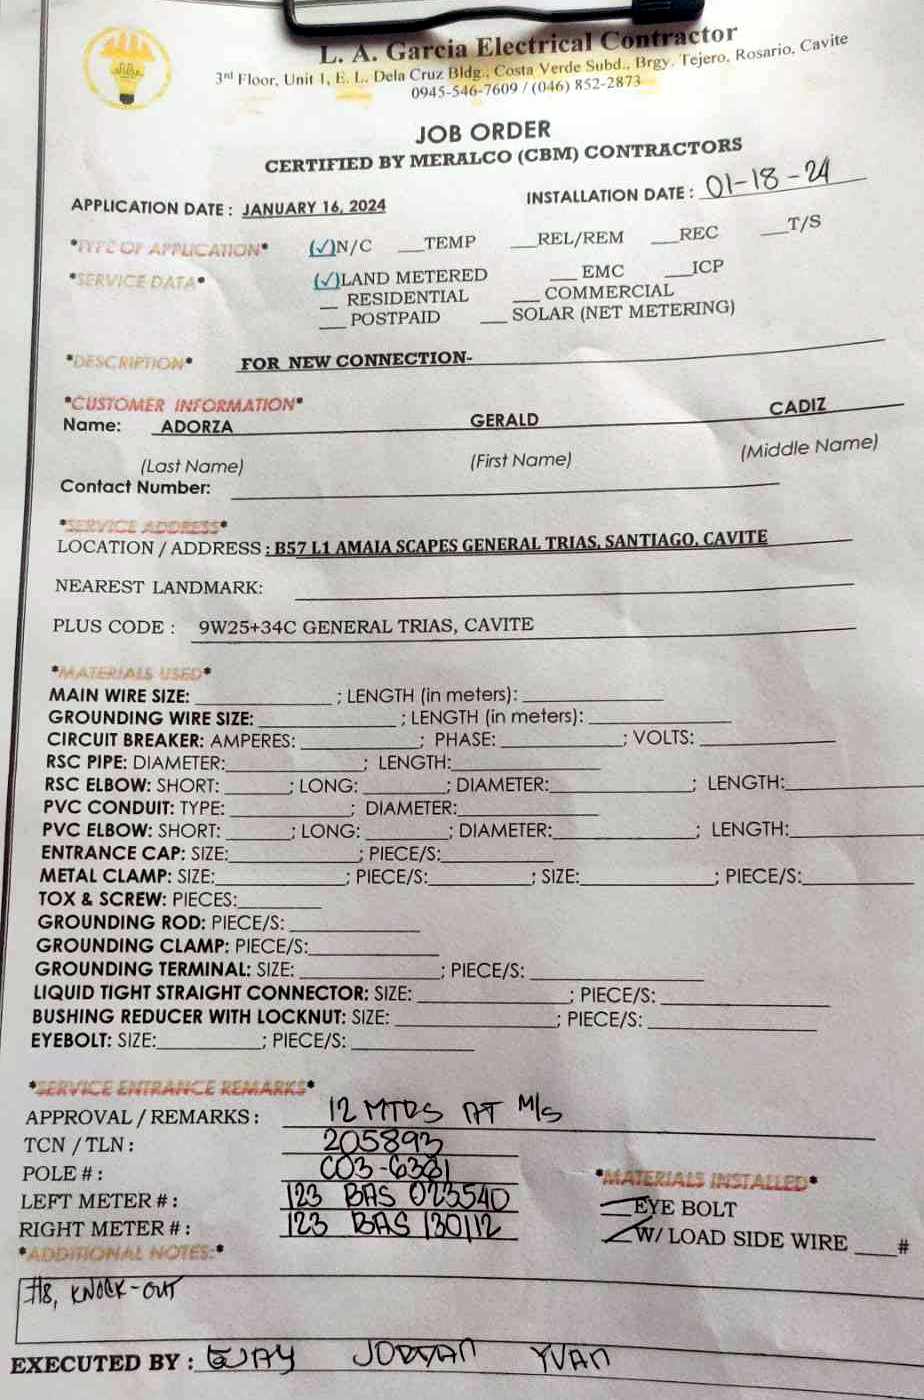 L. A. Garcia Electrical Contractor
3rd Floor, Unit 1, E. L. Dela Cruz Bldg., Costa Verde Subd., Brgy. Tejero, Rosario, Cavite
0945-546-7609 / (046) 852-2873
JOB ORDER
CERTIFIED BY MERALCO (CBM) CONTRACTORS
APPLICATION DATE : JANUARY 16, 2024 INSTALLATION DATE : 01-18-24
*TYPE OF APPLICATION* (✓)N/C ___TEMP ___REL/REM ___REC ___T/S
*SERVICE DATA* (✓)LAND METERED ___ EMC ___ICP
__ RESIDENTIAL ___ COMMERCIAL
___ POSTPAID ___ SOLAR (NET METERING)
*DESCRIPTION* FOR NEW CONNECTION-
*CUSTOMER INFORMATION*
Name: ADORZA GERALD CADIZ
(Last Name) (First Name) (Middle Name)
Contact Number: ____________
*SERVICE ADDRESS*
LOCATION / ADDRESS : B57 L1 AMAIA SCAPES GENERAL TRIAS, SANTIAGO, CAVITE
NEAREST LANDMARK: ____________
PLUS CODE : 9W25+34C GENERAL TRIAS, CAVITE
*MATERIALS USED*
MAIN WIRE SIZE: ____________ ; LENGTH (in meters): ____________
GROUNDING WIRE SIZE: ____________ ; LENGTH (in meters): ____________
CIRCUIT BREAKER: AMPERES: ____________; PHASE: ____________; VOLTS: ____________
RSC PIPE: DIAMETER:____________; LENGTH:____________
RSC ELBOW: SHORT: ______; LONG: ________; DIAMETER:____________; LENGTH:____________
PVC CONDUIT: TYPE: ____________; DIAMETER:____________
PVC ELBOW: SHORT: ______; LONG: ________; DIAMETER:____________; LENGTH:____________
ENTRANCE CAP: SIZE:____________; PIECE/S:____________
METAL CLAMP: SIZE:____________; PIECE/S:__________; SIZE:____________; PIECE/S:____________
TOX & SCREW: PIECES:________
GROUNDING ROD: PIECE/S: ____________
GROUNDING CLAMP: PIECE/S:____________
GROUNDING TERMINAL: SIZE: ____________; PIECE/S: ____________
LIQUID TIGHT STRAIGHT CONNECTOR: SIZE: ____________; PIECE/S: ____________
BUSHING REDUCER WITH LOCKNUT: SIZE: ____________; PIECE/S: ____________
EYEBOLT: SIZE:_________; PIECE/S: ____________
*SERVICE ENTRANCE REMARKS*
APPROVAL / REMARKS : 12 MTRS AT M/S
TCN / TLN : 205893
POLE # : C03-6381
LEFT METER # : 123 BAS 023540
RIGHT METER # : 123 BAS 130112
*MATERIALS INSTALLED*
EYE BOLT
W/ LOAD SIDE WIRE ____#
*ADDITIONAL NOTES:*
#8, KNOCK-OUT
EXECUTED BY : JORDAN YVAN